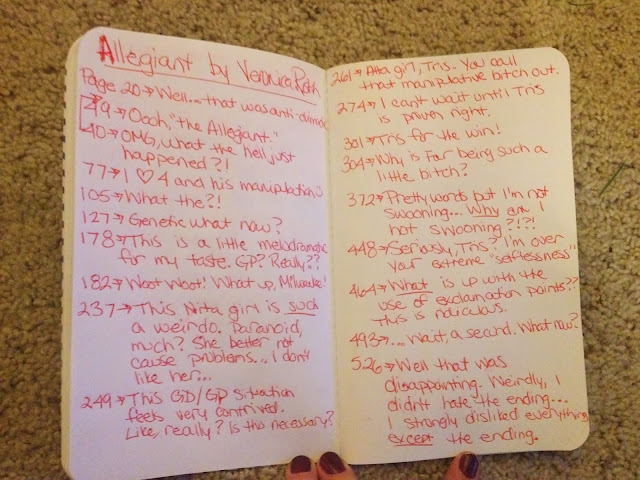 Allegiant by Veronica Roth
Page 20→Well... that was anti-climatic
49→Oooh, "the Allegiant."
40→OMG, what the hell just
happened?!
77→I ♡ 4 and his manipulation
105→What the?!
127→Genetic what now?
178→This is a little melodramatic
for my taste. GP? Really??
182→Woot Woot! What up, Milwaukee!
237→This Nita girl is such
a weirdo. Paranoid,
much? She better not
cause problems... I don't
like her...
249→This GD/GP situation
feels very contrived.
Like, really? Is this necessary?
261→Atta girl, Tris. You call
that manipulative bitch out.
274→I can't wait until Tris
is proven right.
301→Tris for the win!
304→Why is Four being such a
little bitch?
372→Pretty words but I'm not
swooning... Why am I
not swooning?!?!
448→Seriously, Tris? I'm over
your extreme "selflessness".
464→What is up with the
use of exclamation points??
This is ridiculous.
493→... Wait, a second. What now?
526→Well that was
disappointing. Weirdly, I
didn't hate the ending...
I strongly disliked everything
except the ending.